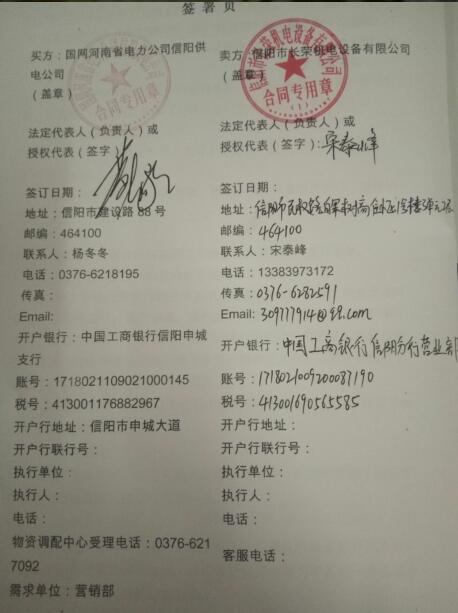 签署页
买方：国网河南省电力公司信阳供
电公司
（盖章）
法定代表人（负责人）或
授权代表（签字）
签订日期：
地址：信阳市建设路 88 号
邮编：464100
联系人：杨冬冬
电话：0376-6218195
传真：
Email:
开户银行：中国工商银行信阳申城
支行
账号：1718021109021000145
税号：413001176882967
开户行地址：信阳市申城大道
开户行联行号：
执行单位：
执行人：
电话：
物资调配中心受理电话：0376-621
7092
需求单位：营销部
卖方：信阳市长荣机电设备有限公司
（盖章）
合同专用章
（1）
法定代表人（负责人）或
授权代表（签字）：宋泰峰
签订日期：
地址：信阳市
邮编：464100
联系人：宋泰峰
电话：13383973172
传真：0376-6282591
Email: 309777914@qq.com
开户银行：中国工商银行信阳分行营业部
账号：1718021009200087190
税号：413001690565585
开户行地址：
开户行联行号：
执行单位：
执行人：
电话：
客服电话：